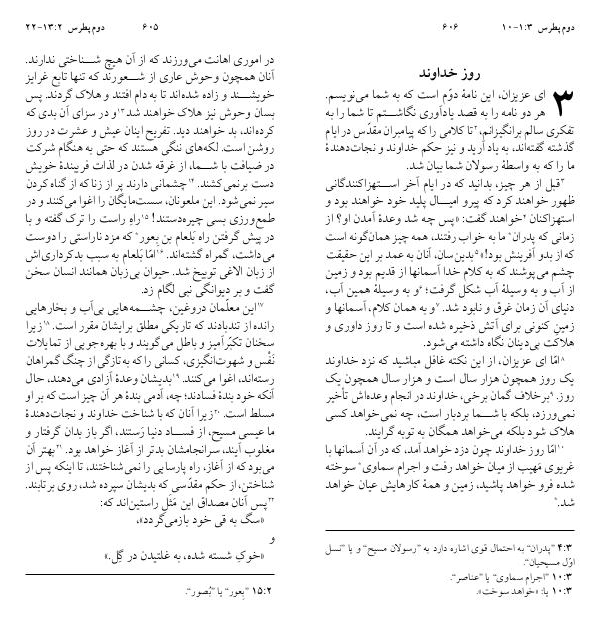 دوم پطرس ۱۳:۲-۲۲ ۶۰۵
در اموری اهانت می‌ورزند که از آن هیچ شناختی ندارند.
آنان همچون وحوش عاری از شعورند که تنها تابع غرایز
خویشند و زاده شده‌اند تا به دام افتند و هلاک گردند. پس
بسان وحوش نیز هلاک خواهند شد ۱۳و در سزای آن بدی که
کرده‌اند، بد خواهند دید. تفریح اینان عیش و عشرت در روز
روشن است. لکه‌های ننگی هستند که حتی به هنگام شرکت
در ضیافت با شما، از غرقه شدن در لذات فریبندۀ خویش
دست برنمی‌کشند. ۱۴چشمانی دارند پر از زنا که از گناه کردن
سیر نمی‌شود. این ملعونان، سست‌مایگان را اغوا می‌کنند و در
طمع‌ورزی بسی چیره‌دستند! ۱۵راه راست را ترک گفته و با
در پیش گرفتن راه بَلعام بن بِعور* که مزد ناراستی را دوست
می‌داشت، گمراه گشته‌اند. ۱۶امّا بَلعام به سبب بدکرداری‌اش
از زبان الاغی توبیخ شد. حیوان بی‌زبان همانند انسان سخن
گفت و بر دیوانگی نبی لگام زد.
۱۷این معلّمان دروغین، چشمه‌هایی بی‌آب و بخارهایی
رانده از تندبادند که تاریکی مطلق برایشان مقرر است. ۱۸زیرا
سخنان تکبّرآمیز و باطل می‌گویند و با بهره‌جویی از تمایلات
نَفْس و شهوت‌انگیزی، کسانی را که به‌تازگی از چنگ گمراهان
رسته‌اند، اغوا می‌کنند. ۱۹بدیشان وعدۀ آزادی می‌دهند، حال
آنکه خود بندۀ فسادند؛ چه، آدمی بندۀ هر آن چیزی است که بر او
مسلط است. ۲۰زیرا آنان که با شناخت خداوند و نجات‌دهندۀ
ما عیسی مسیح، از فساد دنیا رَستند، اگر باز بدان گرفتار و
مغلوب آیند، سرانجامشان بدتر از آغاز خواهد بود. ۲۱بهتر آن
می‌بود که از آغاز، راه پارسایی را نمی‌شناختند، تا اینکه پس از
شناختن، از حکم مقدّسی که بدیشان سپرده شد، روی برتابند.
۲۲پس آنان مصداق این مَثَلِ راستین‌اند که:
«سگ به قی خود بازمی‌گردد»،
و
«خوکِ شسته شده، به غلتیدن در گِل.»
۱۵:۲ ”بِعور“ یا ”بُصور“.
دوم پطرس ۱:۳-۱۰ ۶۰۶
روز خداوند
۳ ای عزیزان، این نامۀ دوّم است که به شما می‌نویسم.
هر دو نامه را به قصد یادآوری نگاشتم تا شما را به
تفکری سالم برانگیزانم، ۲تا کلامی را که پیامبران مقدّس در ایام
گذشته گفته‌اند، به یاد آرید و نیز حکم خداوند و نجات‌دهندۀ
ما را که به واسطۀ رسولان شما بیان شد.
۳قبل از هر چیز، بدانید که در ایام آخر استهزاکنندگانی
ظهور خواهند کرد که پیرو امیال پلید خود خواهند بود و
استهزاکنان ۴خواهند گفت: «پس چه شد وعدۀ آمدن او؟ از
زمانی که پدران* ما به خواب رفتند، همه چیز همان‌گونه است
که از بدو آفرینش بود!» ۵بدین‌سان، آنان به عمد بر این حقیقت
چشم می‌پوشند که به کلام خدا آسمانها از قدیم بود و زمین
از آب و به وسیلۀ آب شکل گرفت؛ ۶و به وسیلۀ همین آب،
دنیای آن زمان غرق و نابود شد. ۷و به همان کلام، آسمانها و
زمینِ کنونی برای آتش ذخیره شده است و تا روز داوری و
هلاکت بی‌دینان نگاه داشته می‌شود.
۸امّا ای عزیزان، از این نکته غافل مباشید که نزد خداوند
یک روز همچون هزار سال است و هزار سال همچون یک
روز. ۹برخلاف گمان برخی، خداوند در انجام وعده‌اش تأخیر
نمی‌ورزد، بلکه با شما بردبار است، چه نمی‌خواهد کسی
هلاک شود بلکه می‌خواهد همگان به توبه گرایند.
۱۰امّا روز خداوند چون دزد خواهد آمد، که در آن آسمانها با
غریوی مَهیب از میان خواهد رفت و اجرام سماوی* سوخته
شده فرو خواهد پاشید، زمین و همۀ کارهایش عیان خواهد
شد.*
۴:۳ ”پدران“ به احتمال قوی اشاره دارد به ”رسولان مسیح“ و یا ”نسل
اوّل مسیحیان“.
۱۰:۳ ”اجرام سماوی“ یا ”عناصر“.
۱۰:۳ یا: «خواهد سوخت».